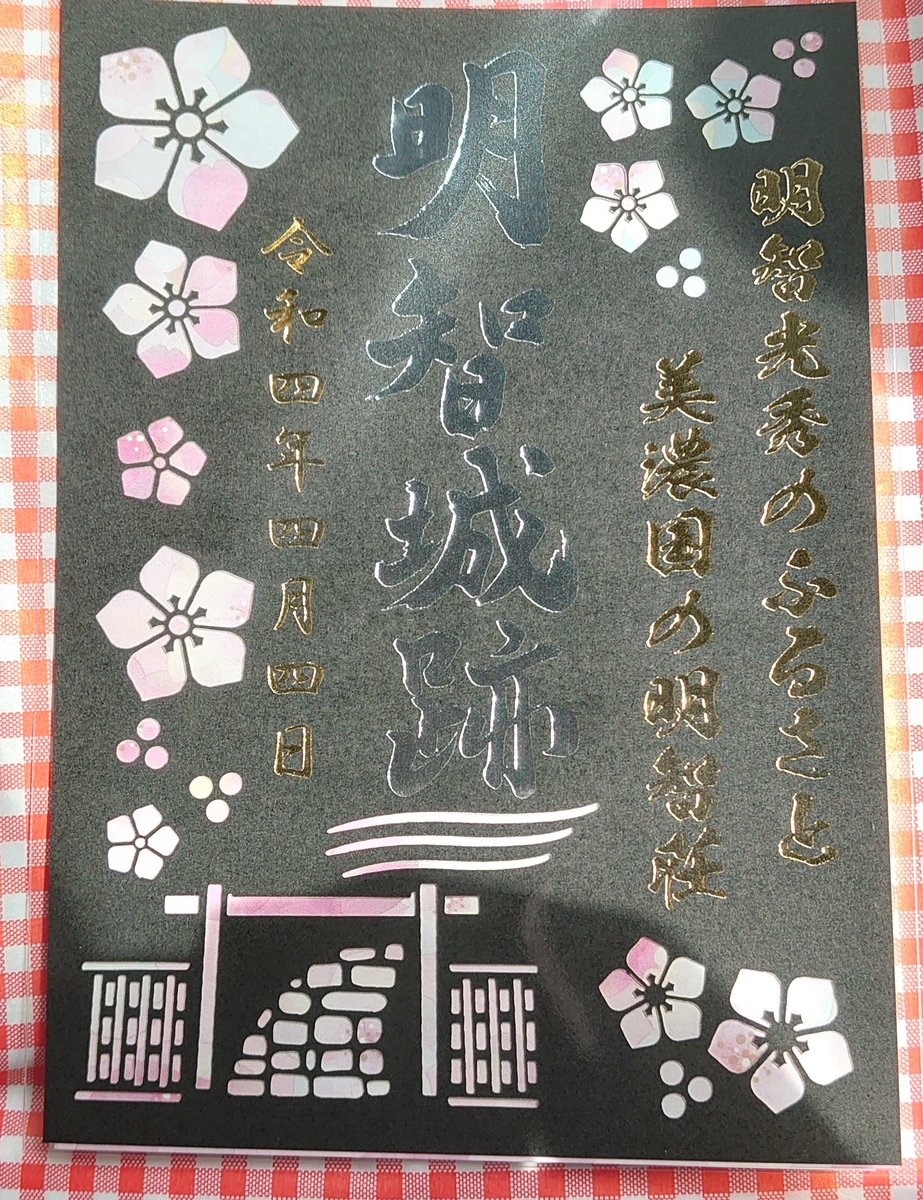 明智光秀のふるさと
美濃国の明智荘
明智城跡
令和四年四月四日